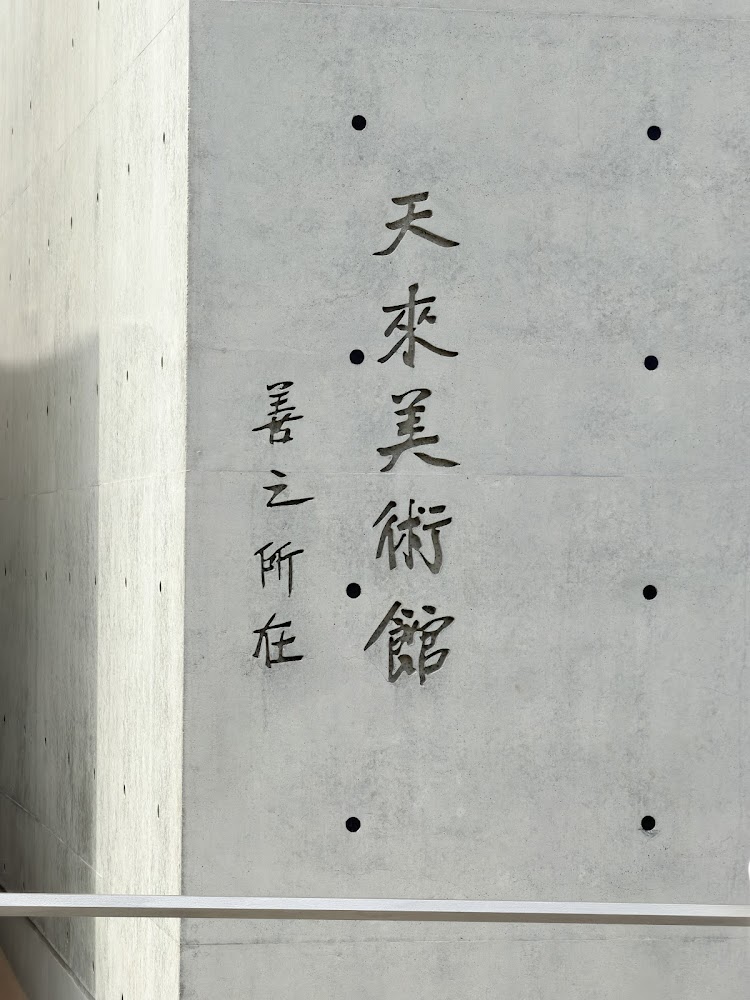 天來美術館
善之所在